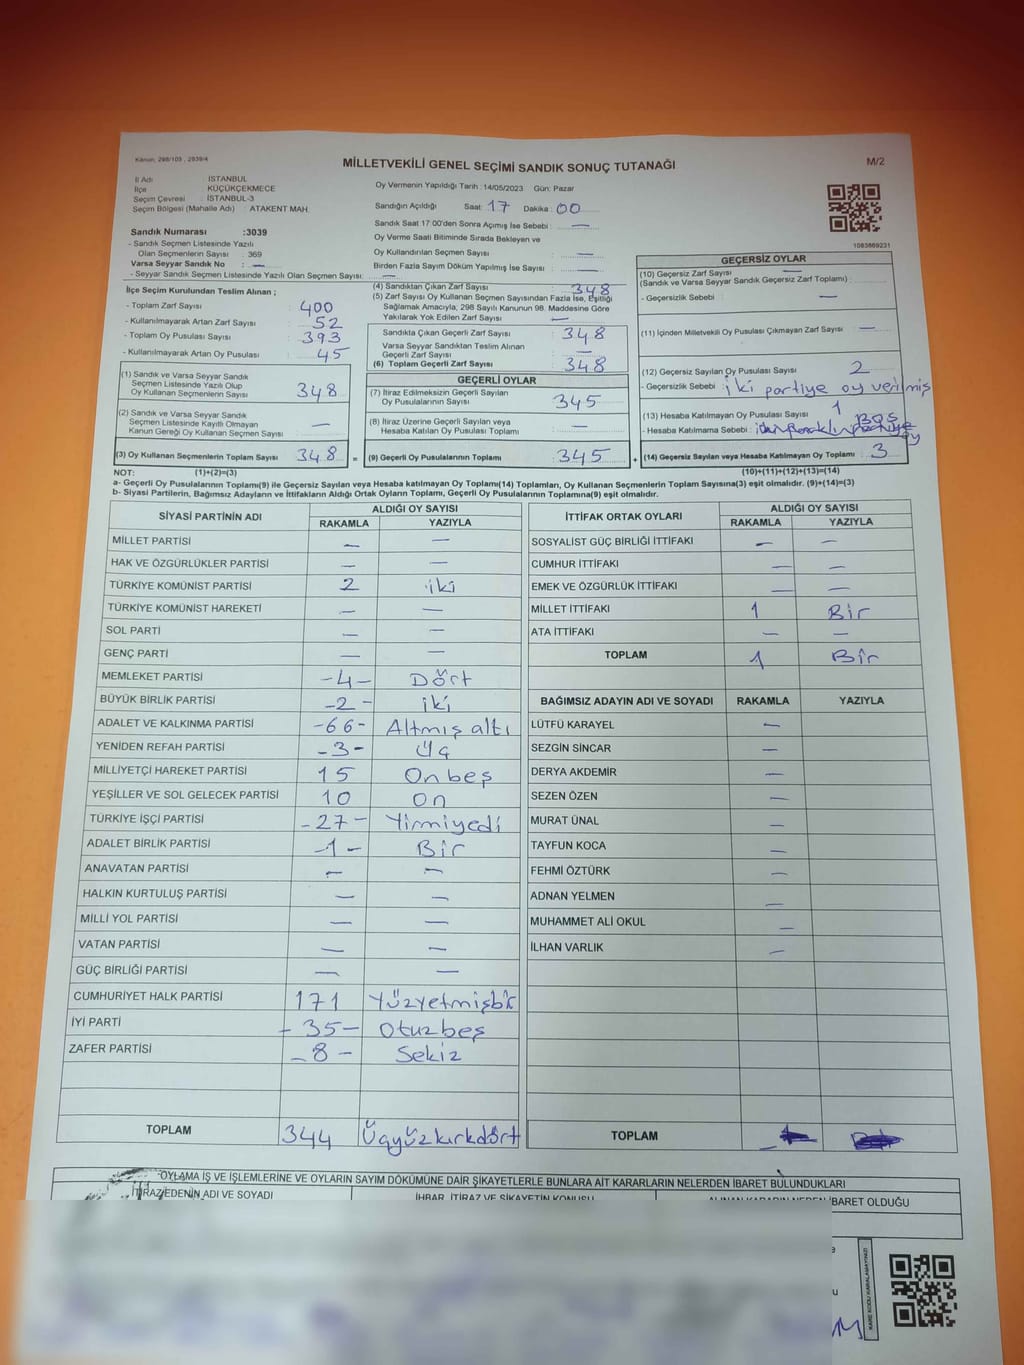 Kanun, 298/105 , 2839/4
MİLLETVEKİLİ GENEL SEÇİMİ SANDIK SONUÇ TUTANAĞI
M/2
İl Adı : İSTANBUL
İlçe : KÜÇÜKÇEKMECE
Seçim Çevresi : İSTANBUL-3
Seçim Bölgesi (Mahalle Adı) : ATAKENT MAH.
Oy Vermenin Yapıldığı Tarih : 14/05/2023 Gün: Pazar
Sandığın Açıldığı Saat: 17 Dakika: 00
Sandık Saat 17:00'den Sonra Açımış İse Sebebi : —
Oy Verme Saati Bitiminde Sırada Bekleyen ve
Oy Kullandırılan Seçmen Sayısı : —
Birden Fazla Sayım Döküm Yapılmış İse Sayısı : —
1083669231
Sandık Numarası :3039
- Sandık Seçmen Listesinde Yazılı
Olan Seçmenlerin Sayısı : 369
Varsa Seyyar Sandık No : —
- Seyyar Sandık Seçmen Listesinde Yazılı Olan Seçmen Sayısı: —
İlçe Seçim Kurulundan Teslim Alınan ;
- Toplam Zarf Sayısı : 400
- Kullanılmayarak Artan Zarf Sayısı : 52
- Toplam Oy Pusulası Sayısı : 393
- Kullanılmayarak Artan Oy Pusulası : 45
(1) Sandık ve Varsa Seyyar Sandık
Seçmen Listesinde Yazılı Olup
Oy Kullanan Seçmenlerin Sayısı : 348
(2) Sandık ve Varsa Seyyar Sandık
Seçmen Listesinde Kayıtlı Olmayan
Kanun Gereği Oy Kullanan Seçmen Sayısı : —
(3) Oy Kullanan Seçmenlerin Toplam Sayısı : 348 =
(4) Sandıktan Çıkan Zarf Sayısı : 348
(5) Zarf Sayısı Oy Kullanan Seçmen Sayısından Fazla İse, Eşitliği
Sağlamak Amacıyla, 298 Sayılı Kanunun 98. Maddesine Göre
Yakılarak Yok Edilen Zarf Sayısı : —
Sandıkta Çıkan Geçerli Zarf Sayısı : 348
Varsa Seyyar Sandıktan Teslim Alınan
Geçerli Zarf Sayısı : —
(6) Toplam Geçerli Zarf Sayısı : 348
GEÇERLİ OYLAR
(7) İtiraz Edilmeksizin Geçerli Sayılan
Oy Pusulalarının Sayısı : 345
(8) İtiraz Üzerine Geçerli Sayılan veya
Hesaba Katılan Oy Pusulası Toplamı : —
(9) Geçerli Oy Pusulalarının Toplamı : 345 +
GEÇERSİZ OYLAR
(10) Geçersiz Zarf Sayısı : —
(Sandık ve Varsa Seyyar Sandık Geçersiz Zarf Toplamı)
- Geçersizlik Sebebi : —
(11) İçinden Milletvekili Oy Pusulası Çıkmayan Zarf Sayısı : —
(12) Geçersiz Sayılan Oy Pusulası Sayısı : 2
- Geçersizlik Sebebi : iki partiye oy verilmiş
(13) Hesaba Katılmayan Oy Pusulası Sayısı : 1
- Hesaba Katılmama Sebebi : Boş
oy
(14) Geçersiz Sayılan veya Hesaba Katılmayan Oy Toplamı : 3
NOT: (1)+(2)=(3) (10)+(11)+(12)+(13)=(14)
a- Geçerli Oy Pusulalarının Toplamı(9) ile Geçersiz Sayılan veya Hesaba katılmayan Oy Toplamı(14) Toplamları, Oy Kullanan Seçmenlerin Toplam Sayısına(3) eşit olmalıdır. (9)+(14)=(3)
b- Siyasi Partilerin, Bağımsız Adayların ve İttifakların Aldığı Ortak Oyların Toplamı, Geçerli Oy Pusulalarının Toplamına(9) eşit olmalıdır.
SİYASİ PARTİNİN ADI ALDIĞI OY SAYISI
RAKAMLA YAZIYLA
MİLLET PARTİSİ — —
HAK VE ÖZGÜRLÜKLER PARTİSİ — —
TÜRKİYE KOMÜNİST PARTİSİ 2 iki
TÜRKİYE KOMÜNİST HAREKETİ — —
SOL PARTİ — —
GENÇ PARTİ — —
MEMLEKET PARTİSİ -4- Dört
BÜYÜK BİRLİK PARTİSİ -2- iki
ADALET VE KALKINMA PARTİSİ -66- Altmış altı
YENİDEN REFAH PARTİSİ -3- Üç
MİLLİYETÇİ HAREKET PARTİSİ 15 On beş
YEŞİLLER VE SOL GELECEK PARTİSİ 10 On
TÜRKİYE İŞÇİ PARTİSİ -27- Yirmiyedi
ADALET BİRLİK PARTİSİ -1- Bir
ANAVATAN PARTİSİ — —
HALKIN KURTULUŞ PARTİSİ — —
MİLLİ YOL PARTİSİ — —
VATAN PARTİSİ — —
GÜÇ BİRLİĞİ PARTİSİ — —
CUMHURİYET HALK PARTİSİ 171 Yüzyetmişbir
İYİ PARTİ -35- Otuzbeş
ZAFER PARTİSİ -8- Sekiz
TOPLAM 344 Üçyüzkırkdört
İTTİFAK ORTAK OYLARI ALDIĞI OY SAYISI
RAKAMLA YAZIYLA
SOSYALİST GÜÇ BİRLİĞİ İTTİFAKI — —
CUMHUR İTTİFAKI — —
EMEK VE ÖZGÜRLÜK İTTİFAKI — —
MİLLET İTTİFAKI 1 Bir
ATA İTTİFAKI — —
TOPLAM 1 Bir
BAĞIMSIZ ADAYIN ADI VE SOYADI RAKAMLA YAZIYLA
LÜTFÜ KARAYEL —
SEZGİN SİNCAR —
DERYA AKDEMİR —
SEZEN ÖZEN —
MURAT ÜNAL —
TAYFUN KOCA —
FEHMİ ÖZTÜRK —
ADNAN YELMEN —
MUHAMMET ALİ OKUL —
İLHAN VARLIK —
TOPLAM
OYLAMA İŞ VE İŞLEMLERİNE VE OYLARIN SAYIM DÖKÜMÜNE DAİR ŞİKAYETLERLE BUNLARA AİT KARARLARIN NELERDEN İBARET BULUNDUKLARI
İTİRAZ EDENİN ADI VE SOYADI İHBAR, İTİRAZ VE ŞİKAYETİN KONUSU ALINAN KARARIN NEDEN İBARET OLDUĞU
KARE KODU KARALAMAYINIZ!